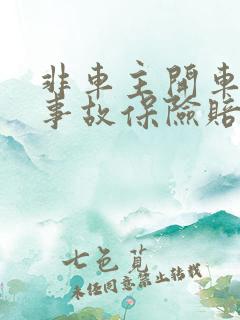 非車主開車
事故保險賠
七色莧
未經同意禁止轉載